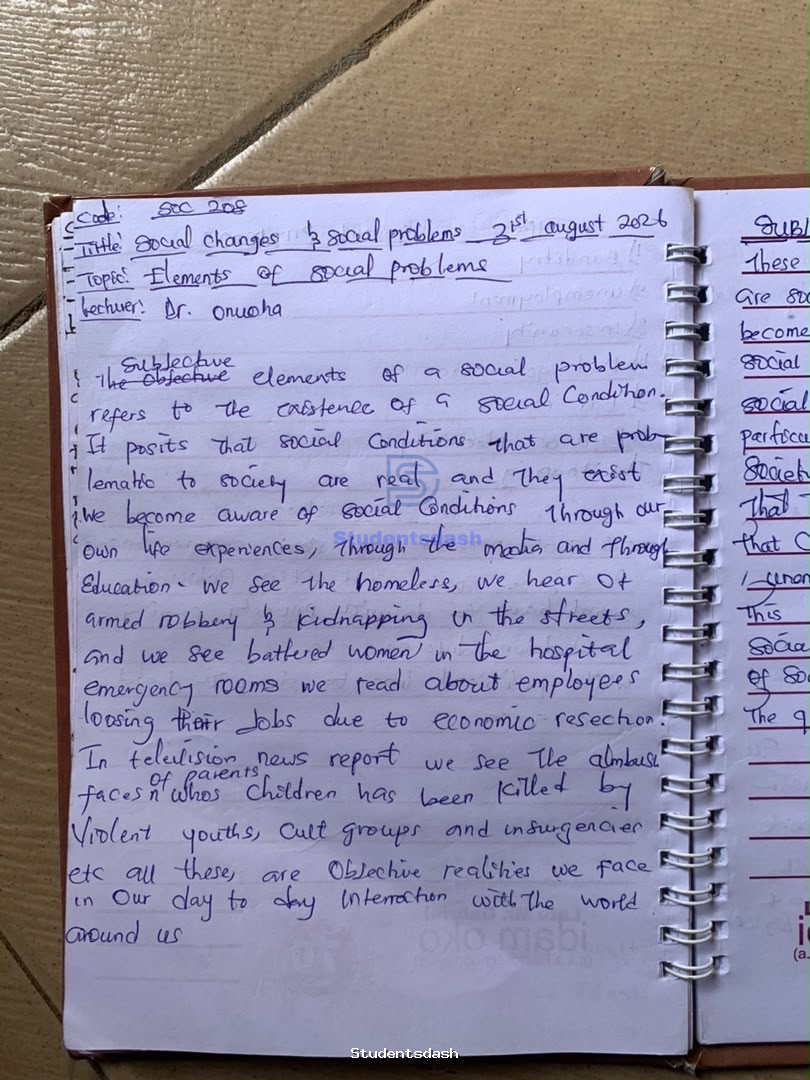 Code: SOC 208
Tittle: Social changes & social problems 31st august 2026
Topic: Elements of social problems
Lectuer: Dr. onuoha
Subjective
The Objective elements of a social problem
refers to the existence of a social Condition.
It posits that social Conditions that are prob-
lematic to society are real and they exist
we become aware of social Conditions through our
own life experiences, through the media and through
Education. we see the homeless, we hear of
armed robbery & kidnapping in the streets,
and we see battered women in the hospital
emergency rooms we read about employees
loosing their Jobs due to economic resection.
In television news report we see the
of parents
faces n whos children has been killed by
Violent youths, Cult groups and insurgencies
etc all these, are Objective realities we face
in Our day to day Interaction with the world
around us
These
are
become
social
social
Societ
That
that
This
of
The
Studentsdash
Studentsdash